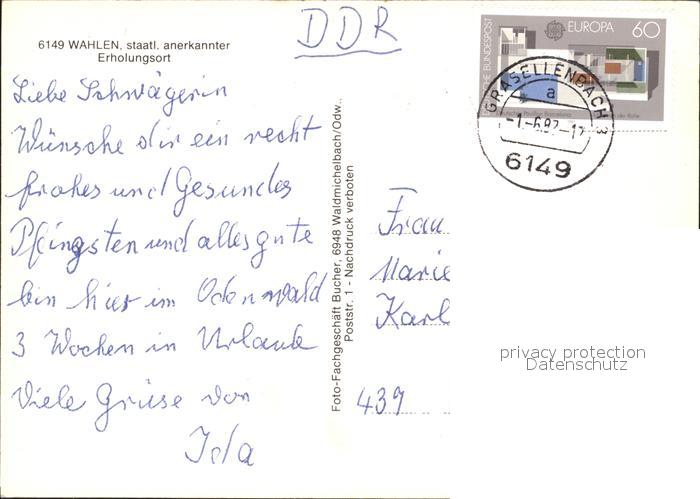 6149 WAHLEN, staatl. anerkannter
Erholungsort
DDR
DEUTSCHE BUNDESPOST
EUROPA 60
GRASELLENBACH 3
a
-1.-6.87-12
6149
Liebe Schwägerin
Wünsche dir ein recht
frohes und Gesundes
Pfingsten und alles gute
bin hier im Odenwald
3 Wochen in Urlaub
Viele Grüse von
Ida
Foto-Fachgeschäft Bucher, 6948 Waldmichelbach/Odw.,
Poststr. 1 - Nachdruck verboten
Frau
Marie
Karl
439
privacy protection
Datenschutz